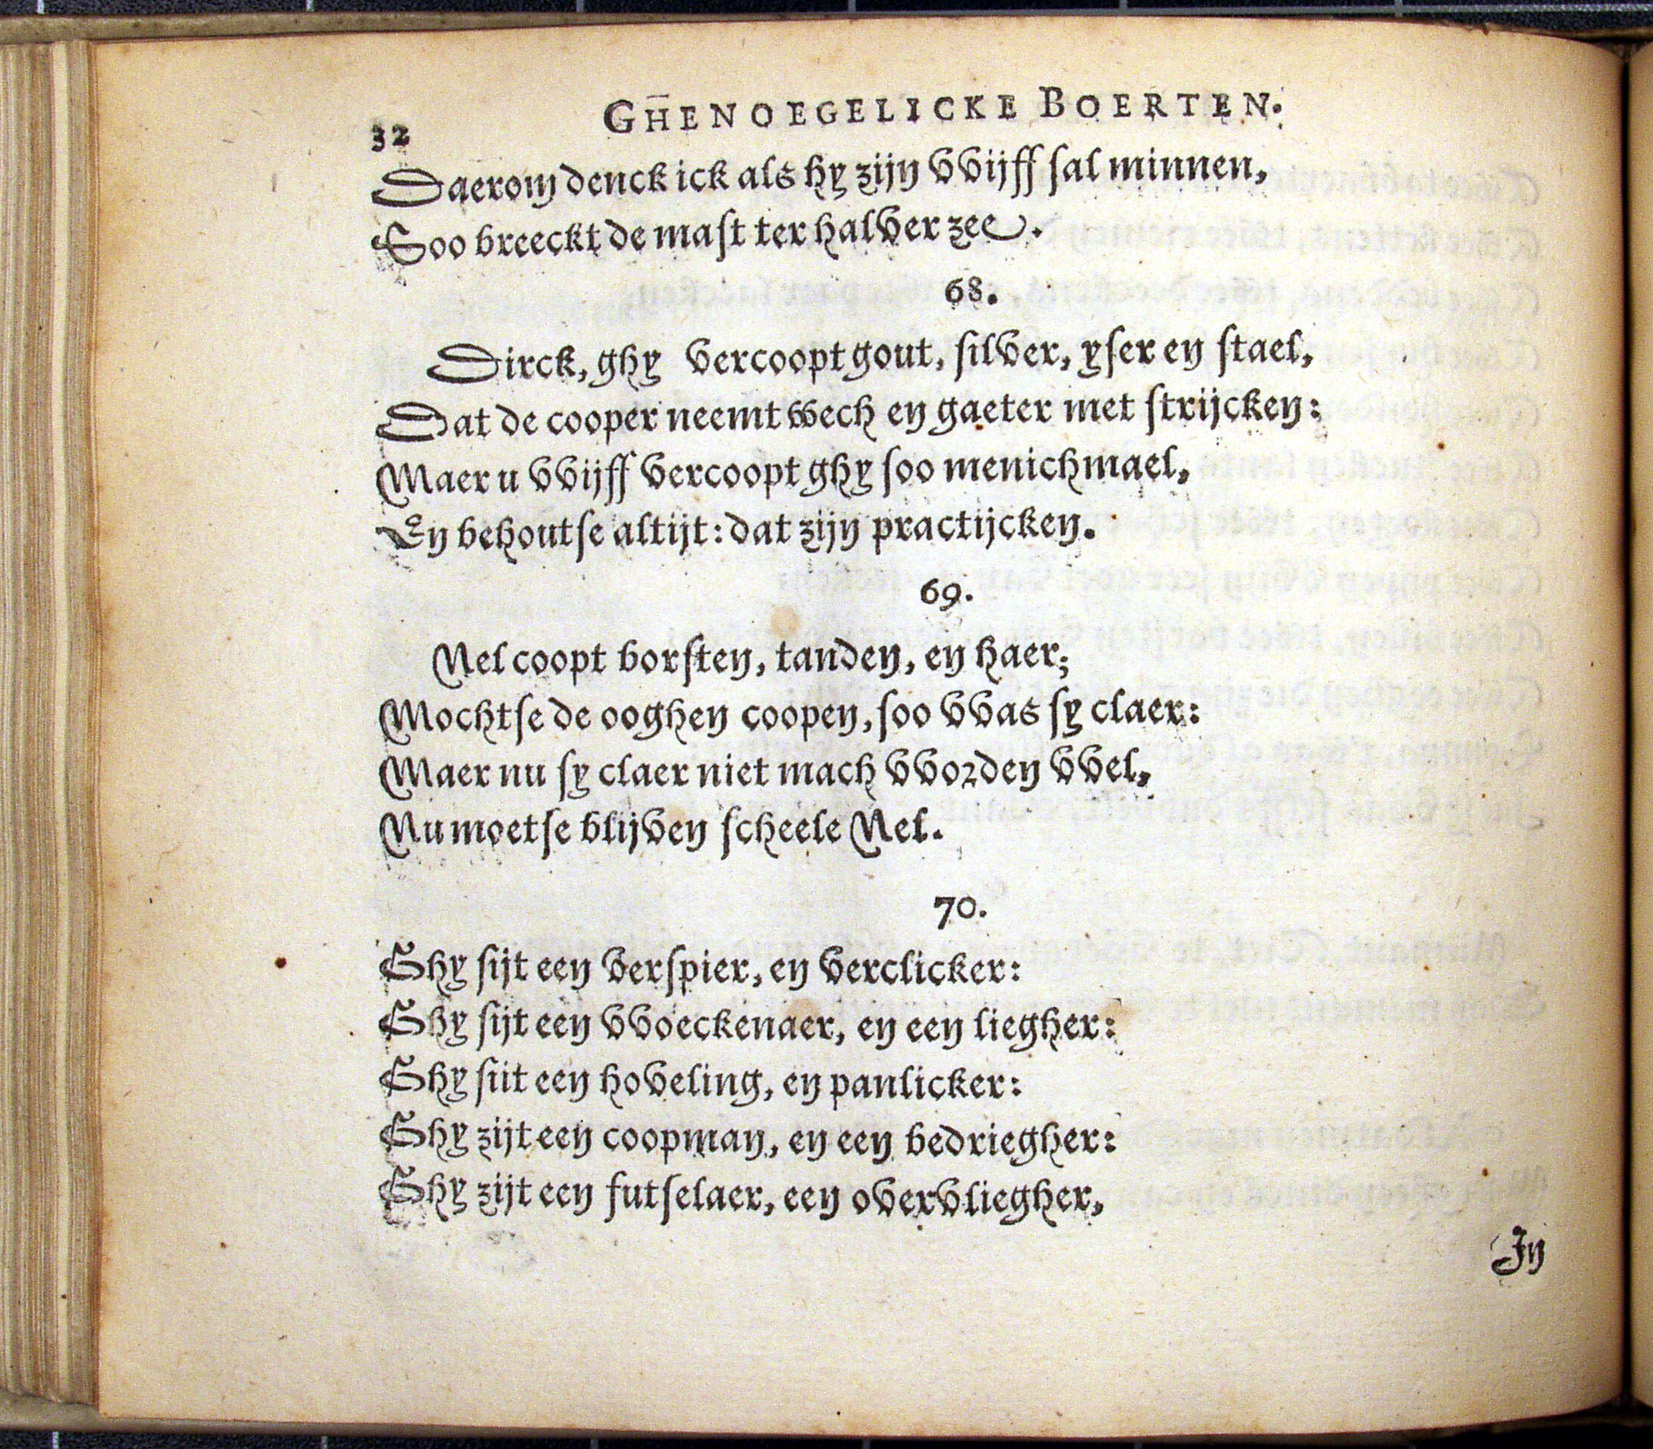 32
GHENOEGELICKE BOERTEN.
Daerom denck ick als hy zijn vvijff sal minnen,
Soo breeckt de mast ter halver zee.
68.
Dirck, ghy vercoopt gout, silver, yser en stael,
Dat de cooper neemt wech en gaeter met strijcken:
Maer u vvijff vercoopt ghy soo menichmael,
En behoutse altijt: dat zijn practijcken.
69.
Nel coopt borsten, tanden, en haer;
Mochtse de ooghen coopen, soo vvas sy claer:
Maer nu sy claer niet mach vvorden vvel,
Nu moetse blijven scheele Nel.
70.
Ghy sijt een verspier, en verclicker:
Ghy sijt een vvoeckenaer, en een liegher:
Ghy siit een hoveling, en panlicker:
Ghy zijt een coopman, en een bedriegher:
Ghy zijt een futselaer, een overvliegher,
In